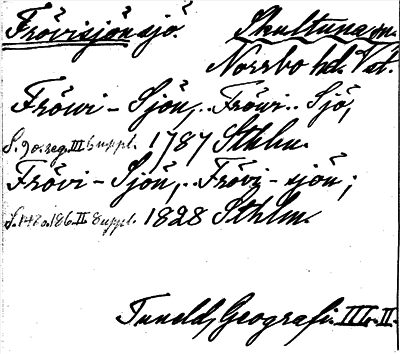 Frövisjön sjö. Skultuna sn.
Norrbo hd. Vst.
Fröwi-Sjön, Fröwi-Sjö,
S. 90. reg. III 6 uppl. 1787 Sthlm.
Frövi-Sjön, Frövi-sjön;
S. 148 o. 186. II 8 uppl. 1828 Sthlm.
Tuneld, Geografi. III o. II.